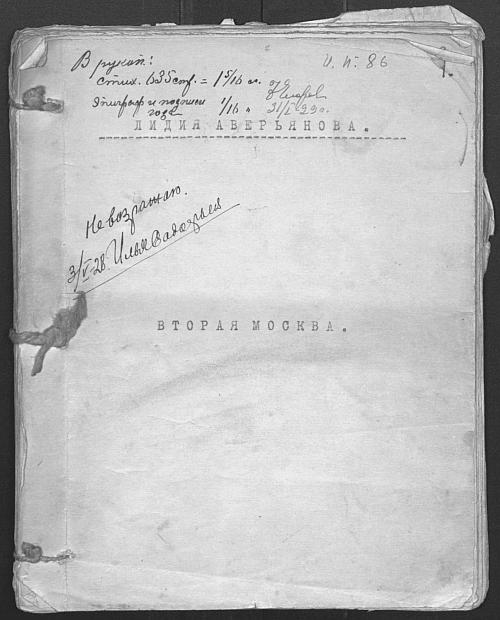 В рукоп:
U. N. 86
стих. 635 стр. = 1 5/16 л.
1.
Эпиграф и подписи 1/16 "
года 31/I 29 г.
ЛИДИЯ АВЕРЬЯНОВА.
Не возражаю.
3/V-28. Илья Садофьев
ВТОРАЯ МОСКВА.